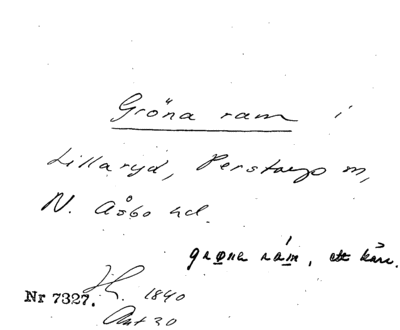 Gröna ram i
Lillaryd, Perstorp m,
N. Åsbo hd.
grøna rám, ett kärr.
Nr 7327. 1840
Akt 20